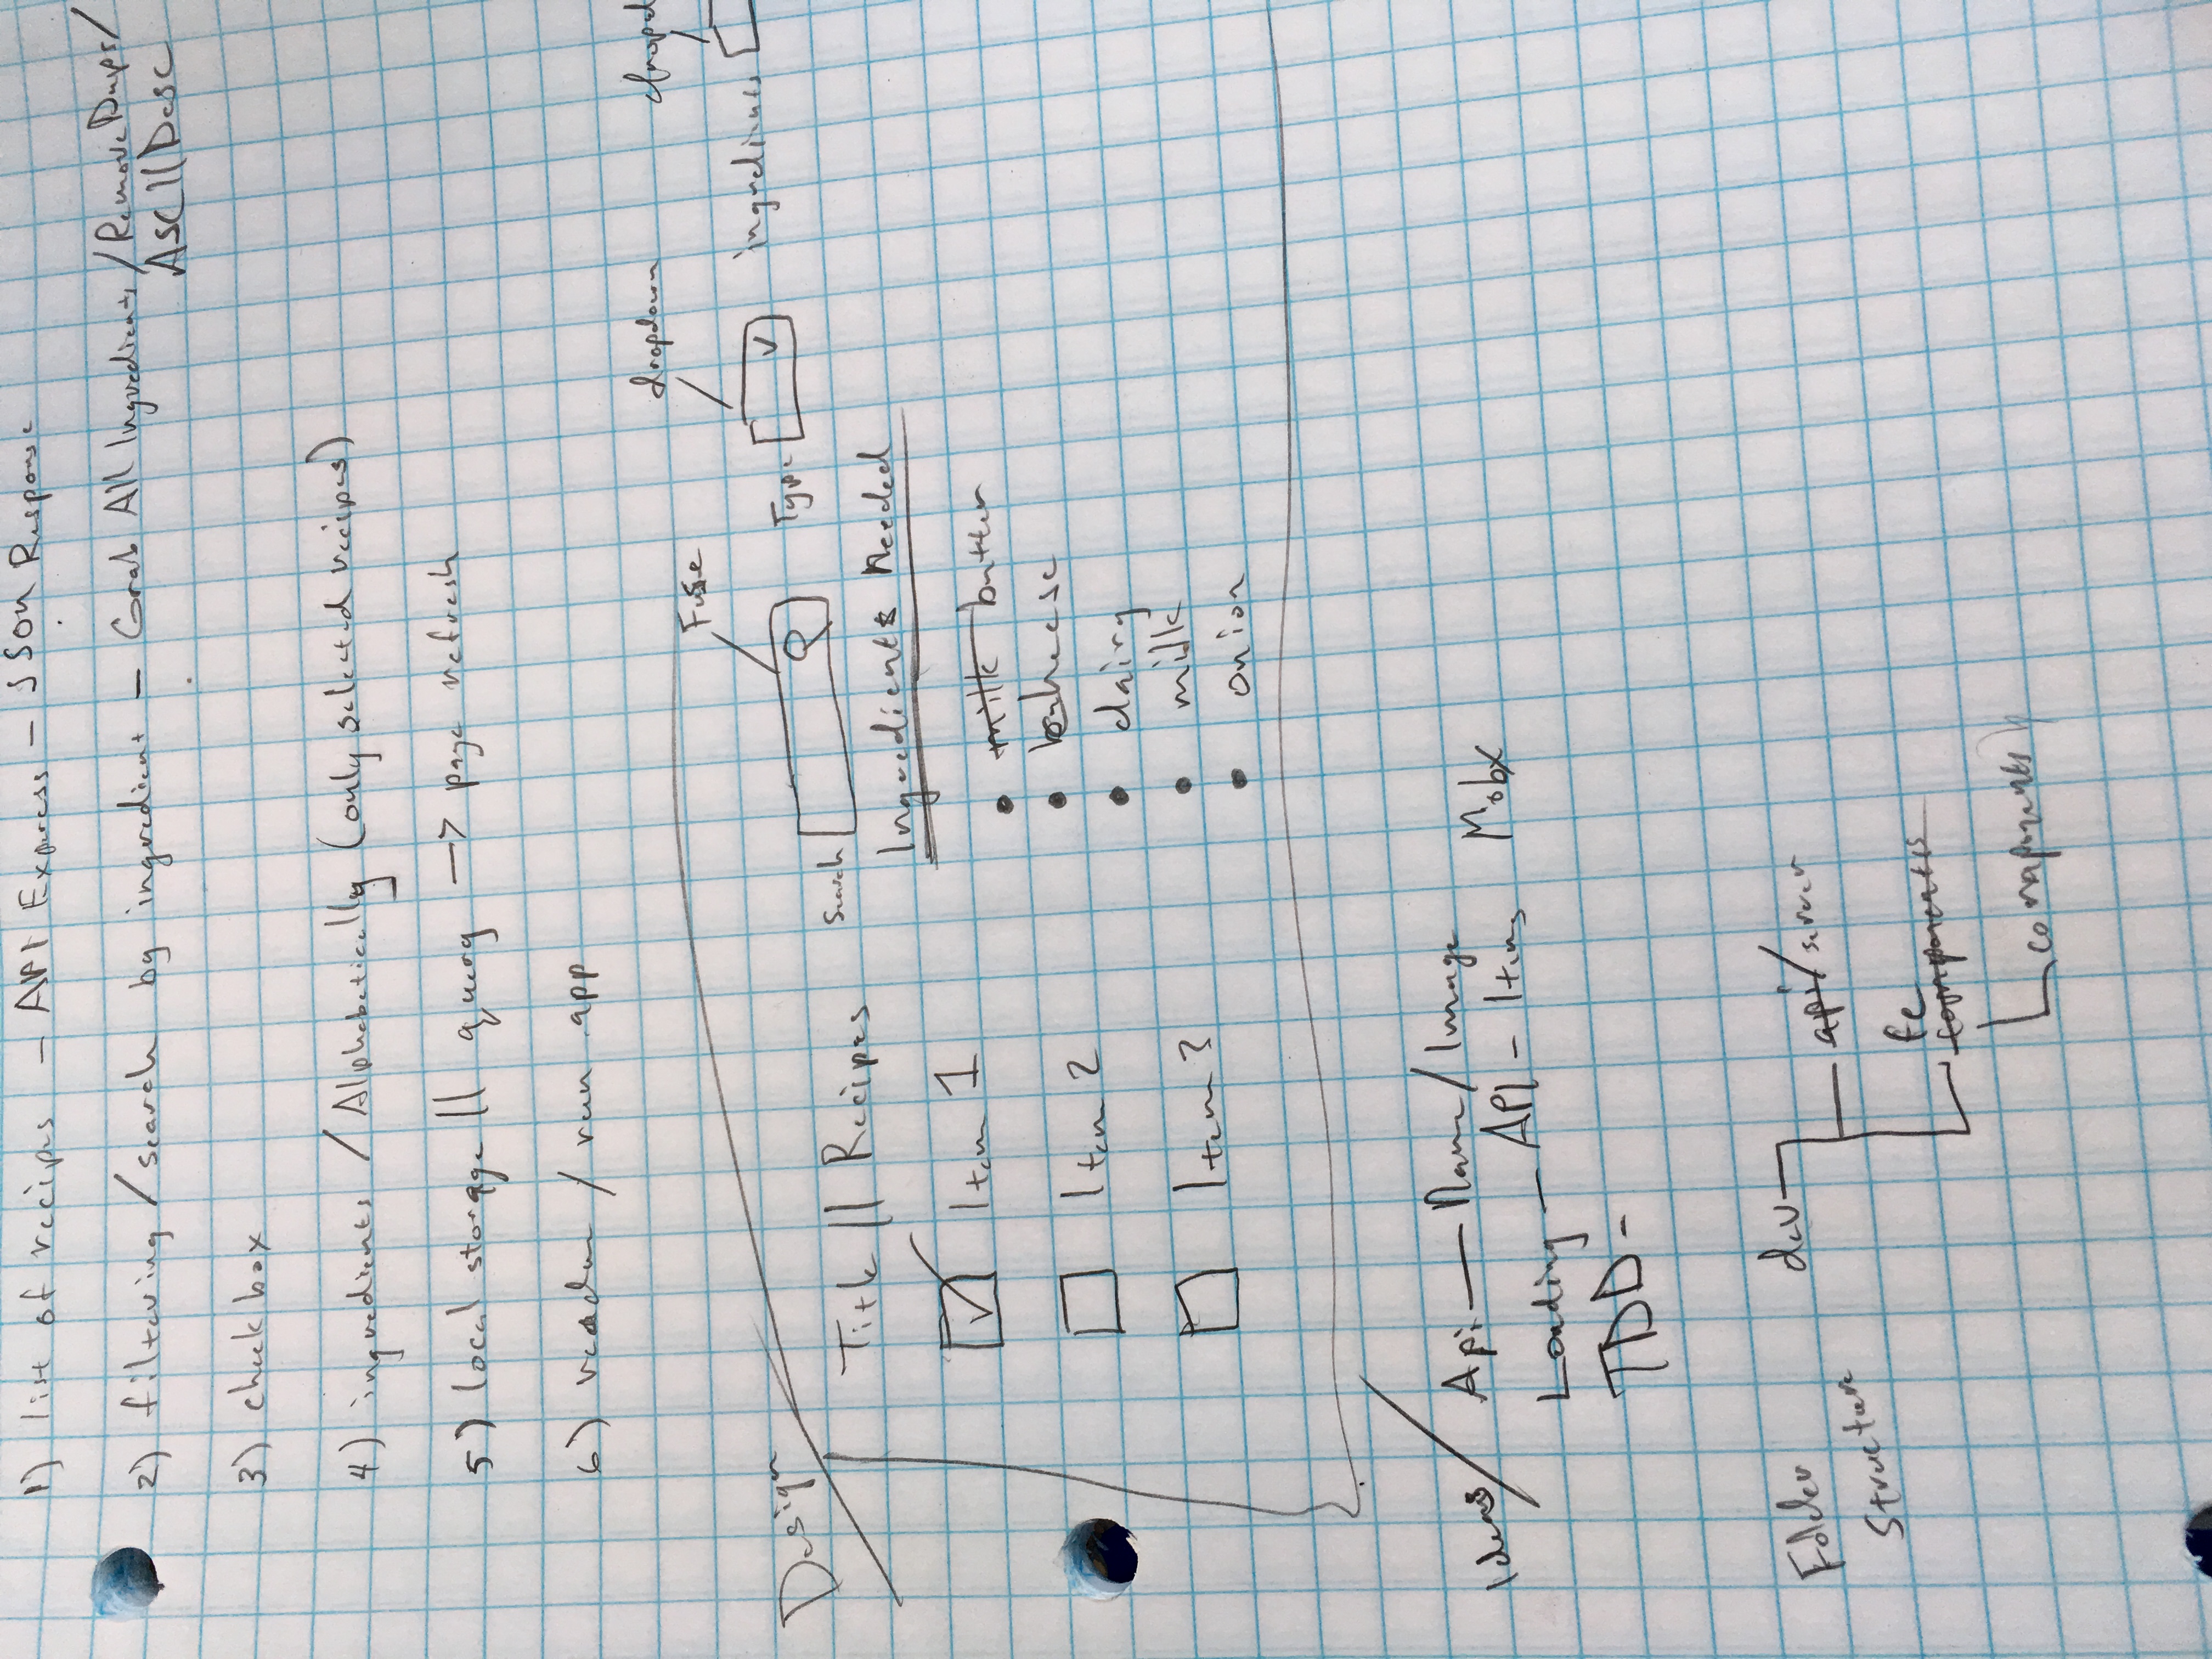 1) list of recipes - API Express - JSon Response
2) filtering / search by ingredient - Grab All Ingredients / Remove Dups /
ASC || Desc
3) check box
4) ingredients / Alphabetically (only selected recipes)
5) local storage || query -> page refresh
6) readme / run app
Design
Fuse
dropdown
Search
Type
ingredients
Title || Recipes
Ingredients Needed
Item 1
Item 2
Item 3
• milk butter
• cheese
• dairy
• milk
• onion
Ideas /
Api — Name / Image
Loading — API - Items
Mobx
TDD -
Folder
Structure
dev
api / server
fe
components
components